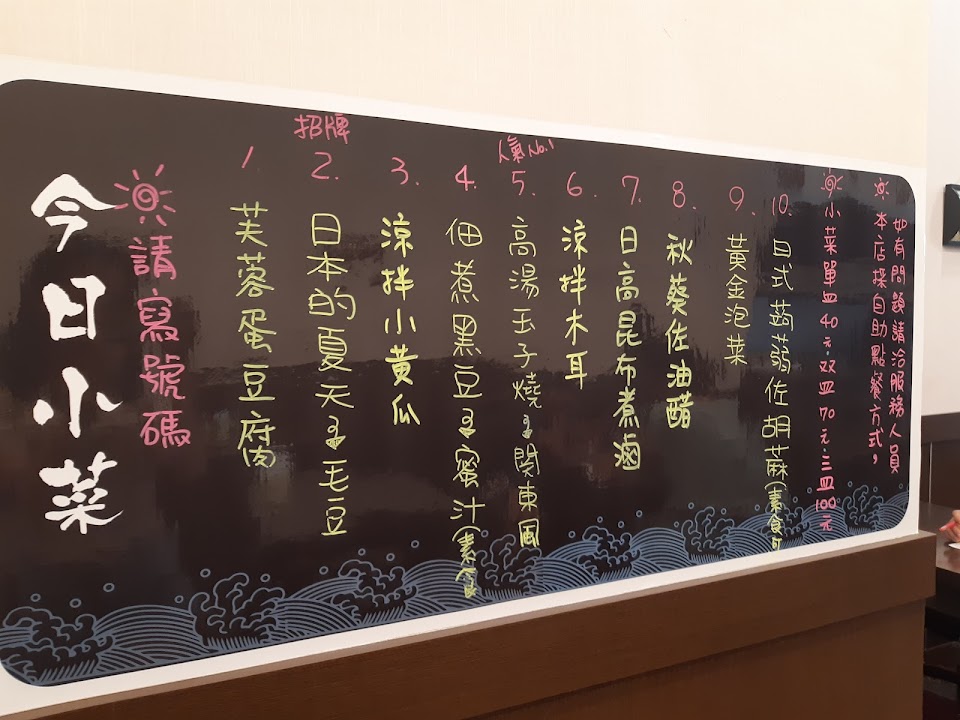 今日小菜
請寫號碼
1 芙蓉蛋豆腐
招牌
2. 日本的夏天 毛豆
3. 涼拌小黃瓜
4. 佃煮黑豆 蜜汁(素食
人氣No.1
5. 高湯玉子燒 関東風
6. 涼拌木耳
7. 日高昆布煮滷
8. 秋葵佐油醋
9. 黃金泡菜
10. 日式蒟蒻佐胡蔴(素食可
小菜單皿40元.双皿70元.三皿100元
本店採自助點餐方式,
如有問題請洽服務人員